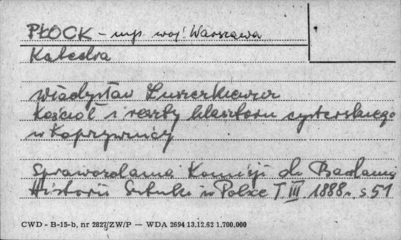 PŁOCK - mp. woj. Warszawa
Katedra
Władysław Łuszczkiewicz
Kościół i reszty klasztoru cysterskiego
w Koprzywnicy
Sprawozdania Komisji do Badania
Historii Sztuki w Polsce T. III 1888r. s 51
CWD - B-15-b, nr 2827/ZW/P — WDA 2694 13.12.62 1.700.000